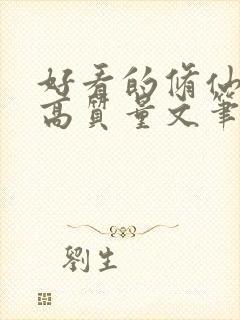 好看的脩仙
高質量文筆
劉生